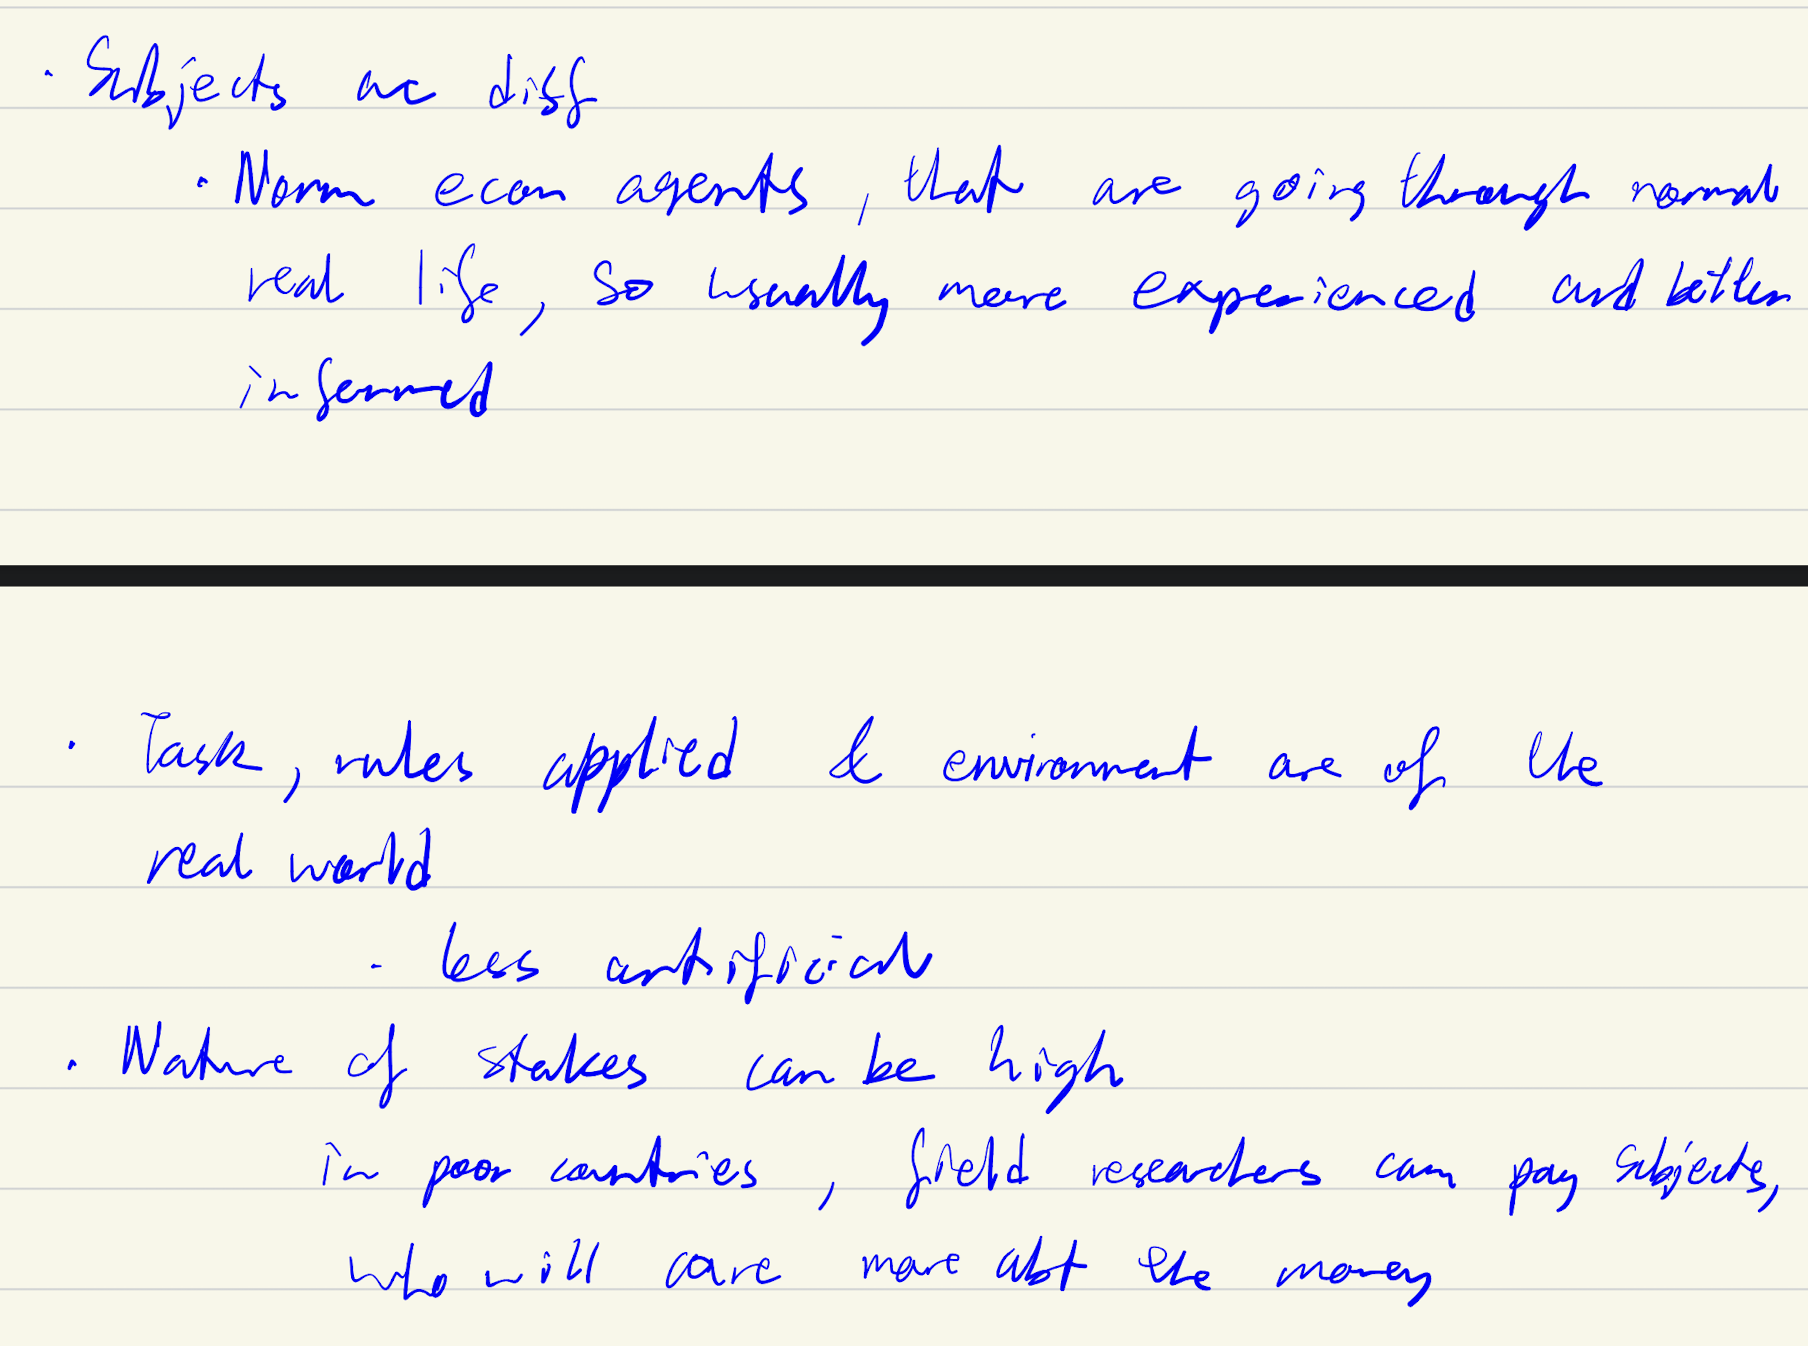 · Subjects are diff
· Norm econ agents, that are going through normal
real life, so usually more experienced and better
informed
· Task, rules applied & environment are of the
real world
· less artificial
· Nature of stakes can be high
in poor countries, field researchers can pay subjects,
who will care more abt the money